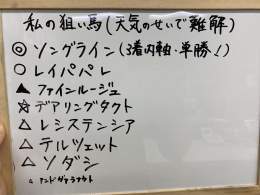 私の狙い馬(天気のせいで難解)
◎ソングライン(3着内軸・単勝!)
○レイパパレ
▲ファインルージュ
☆デアリングタクト
△レシステンシア
△テルツェット
△ソダシ
△アンドヴァラナウト